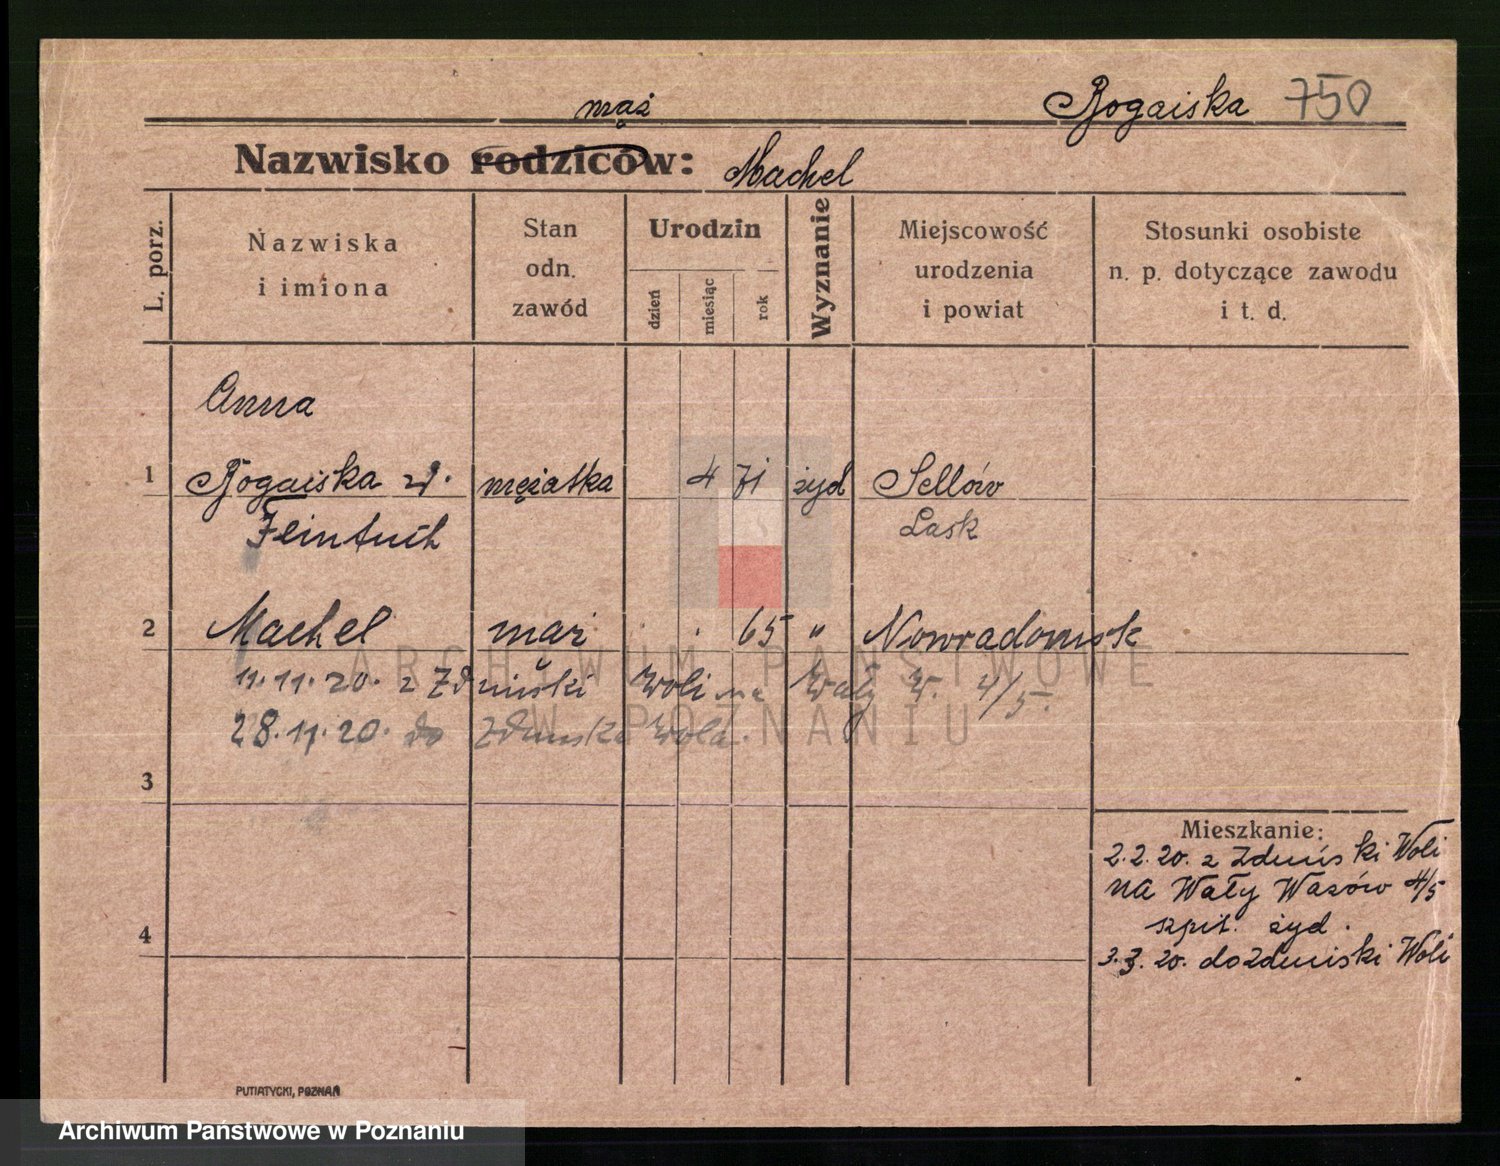 Rogaiska 750
mąż
Nazwisko rodziców: Machel
L. porz.
Nazwiska
i imiona
Stan
odn.
zawód
Urodzin
dzień
miesiąc
rok
Wyznanie
Miejscowość
urodzenia
i powiat
Stosunki osobiste
n. p. dotyczące zawodu
i t. d.
Anna
1 Rogaiska z d. mężatka 4 71 żyd Sellów
Feintuch Lask
2 Machel mąż 65 " Nowradomsk
11.11.20. z Zduński Woli na Wały W. 4/5.
28.11.20. do Zduńska Wola.
3
Mieszkanie:
2.2.20. z Zduński Woli
na Wały Wazów 4/5
szpit. żyd.
3.3.20. do Zduński Woli
4
PUTIATYCKI, POZNAŃ
ARCHIWUM PAŃSTWOWE
W POZNANIU
Archiwum Państwowe w Poznaniu